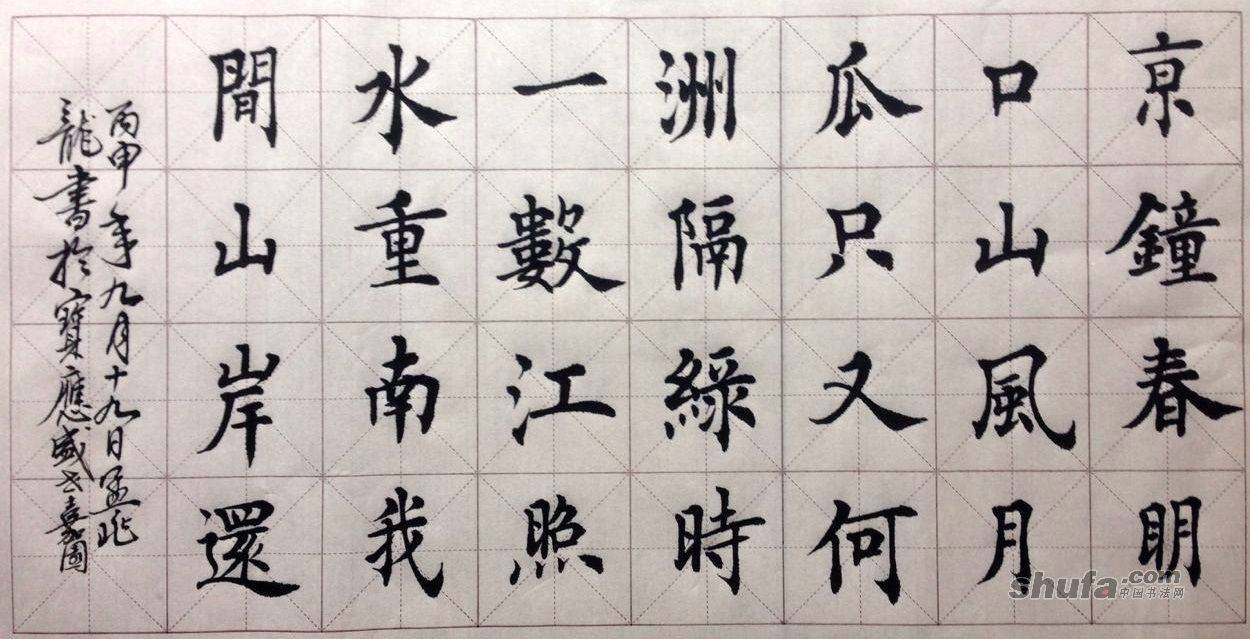 京口瓜洲一水間
鐘山只隔數重山
春風又綠江南岸
明月何時照我還
丙申年九月十九日孟兆
龍書於寶應盛世嘉園
shufa.com
中国书法网